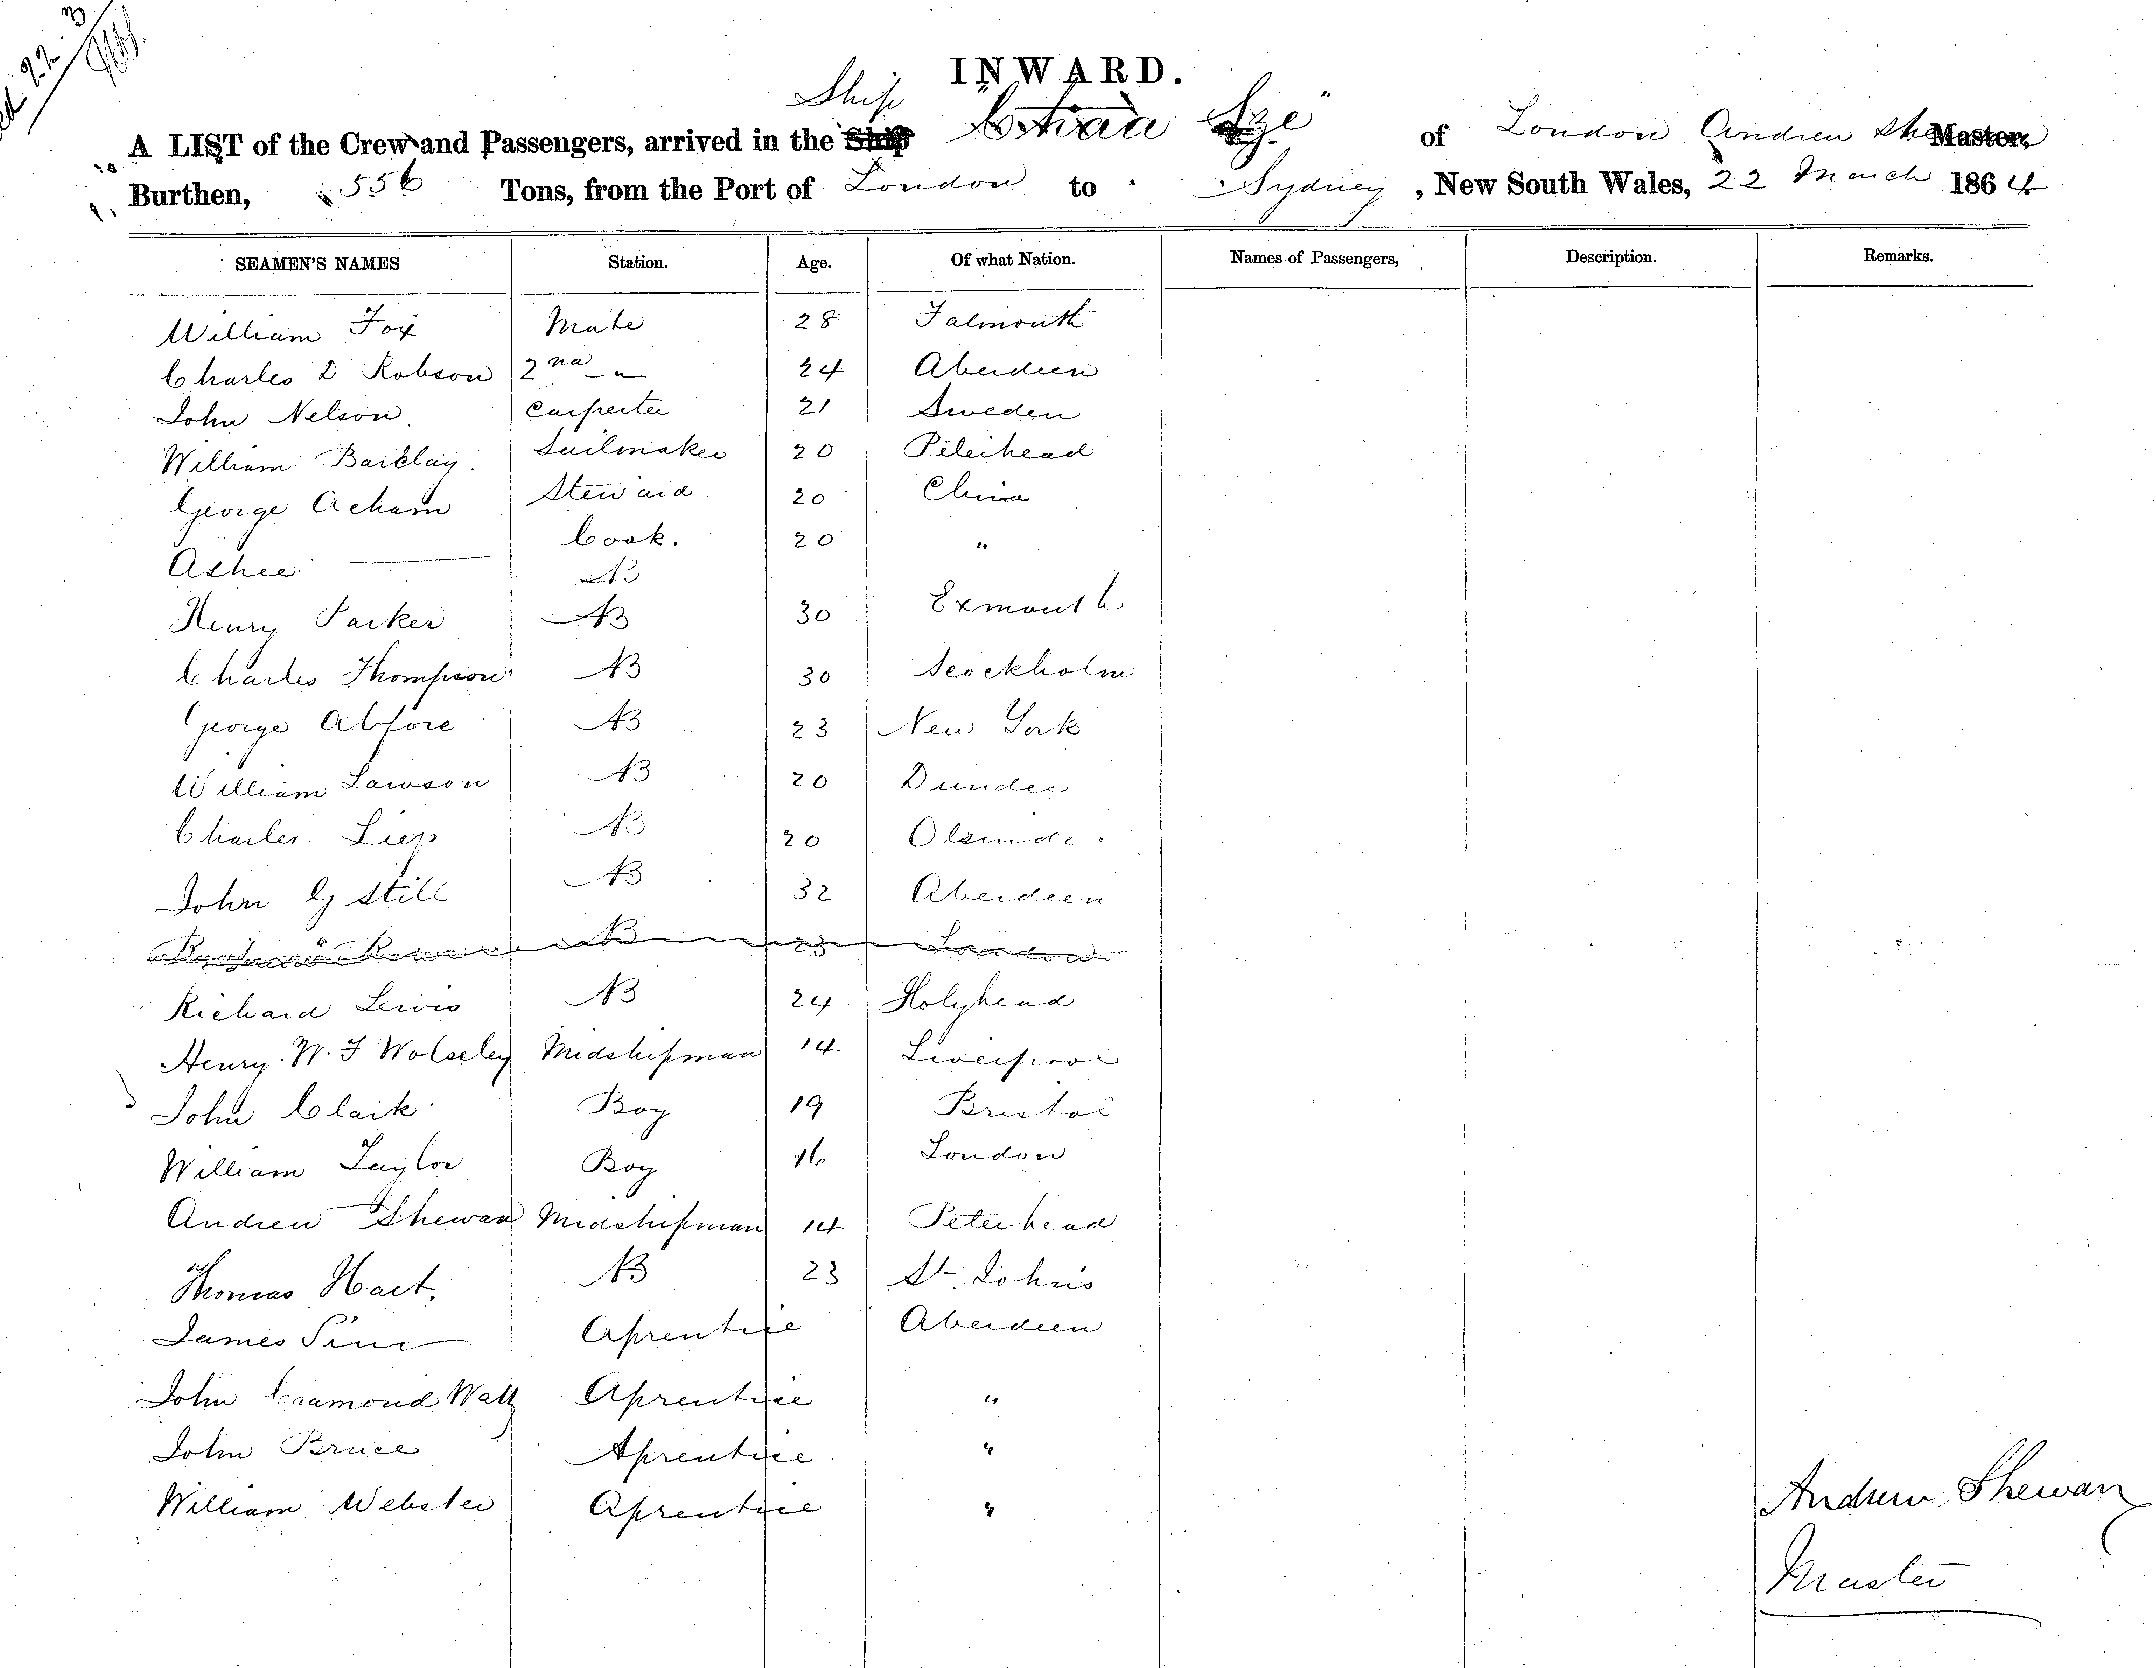 INWARD.
Ship
A LIST of the Crew and Passengers, arrived in the Ship Sze" of London Andrew Shewan Master,
Burthen, 556 Tons, from the Port of London to Sydney, New South Wales, 22 March 1864
SEAMEN'S NAMES Station. Age. Of what Nation. Names of Passengers, Description. Remarks.
William Fox Mate 28 Falmouth
Charles D Robson 2nd " 24 Aberdeen
John Nelson. Carpenter 21 Sweden
William Barclay. Sailmaker 20 Peterhead
George Acham Steward 20 China
Ashee Cook. 20 "
AB
Henry Parker AB 30 Exmouth
Charles Thompson AB 30 Stockholm
George Abfore AB 23 New York
William Lawson AB 20 Dundee
Charles Liep AB 20
John G Still AB 32 Aberdeen
AB 23 London
Richard Lewis AB 24 Holyhead
Henry W. F Wolseley Midshipman 14 Liverpool
John Clark Boy 19 Bristol
William Taylor Boy 16 London
Andrew Shewan Midshipman 14 Peterhead
Thomas Hart. AB 23 St. John's
James Sim Aprentice Aberdeen
John Cramond Watt Aprentice "
John Bruce Aprentice "
William Webster Aprentice "
Andrew Shewan
Master